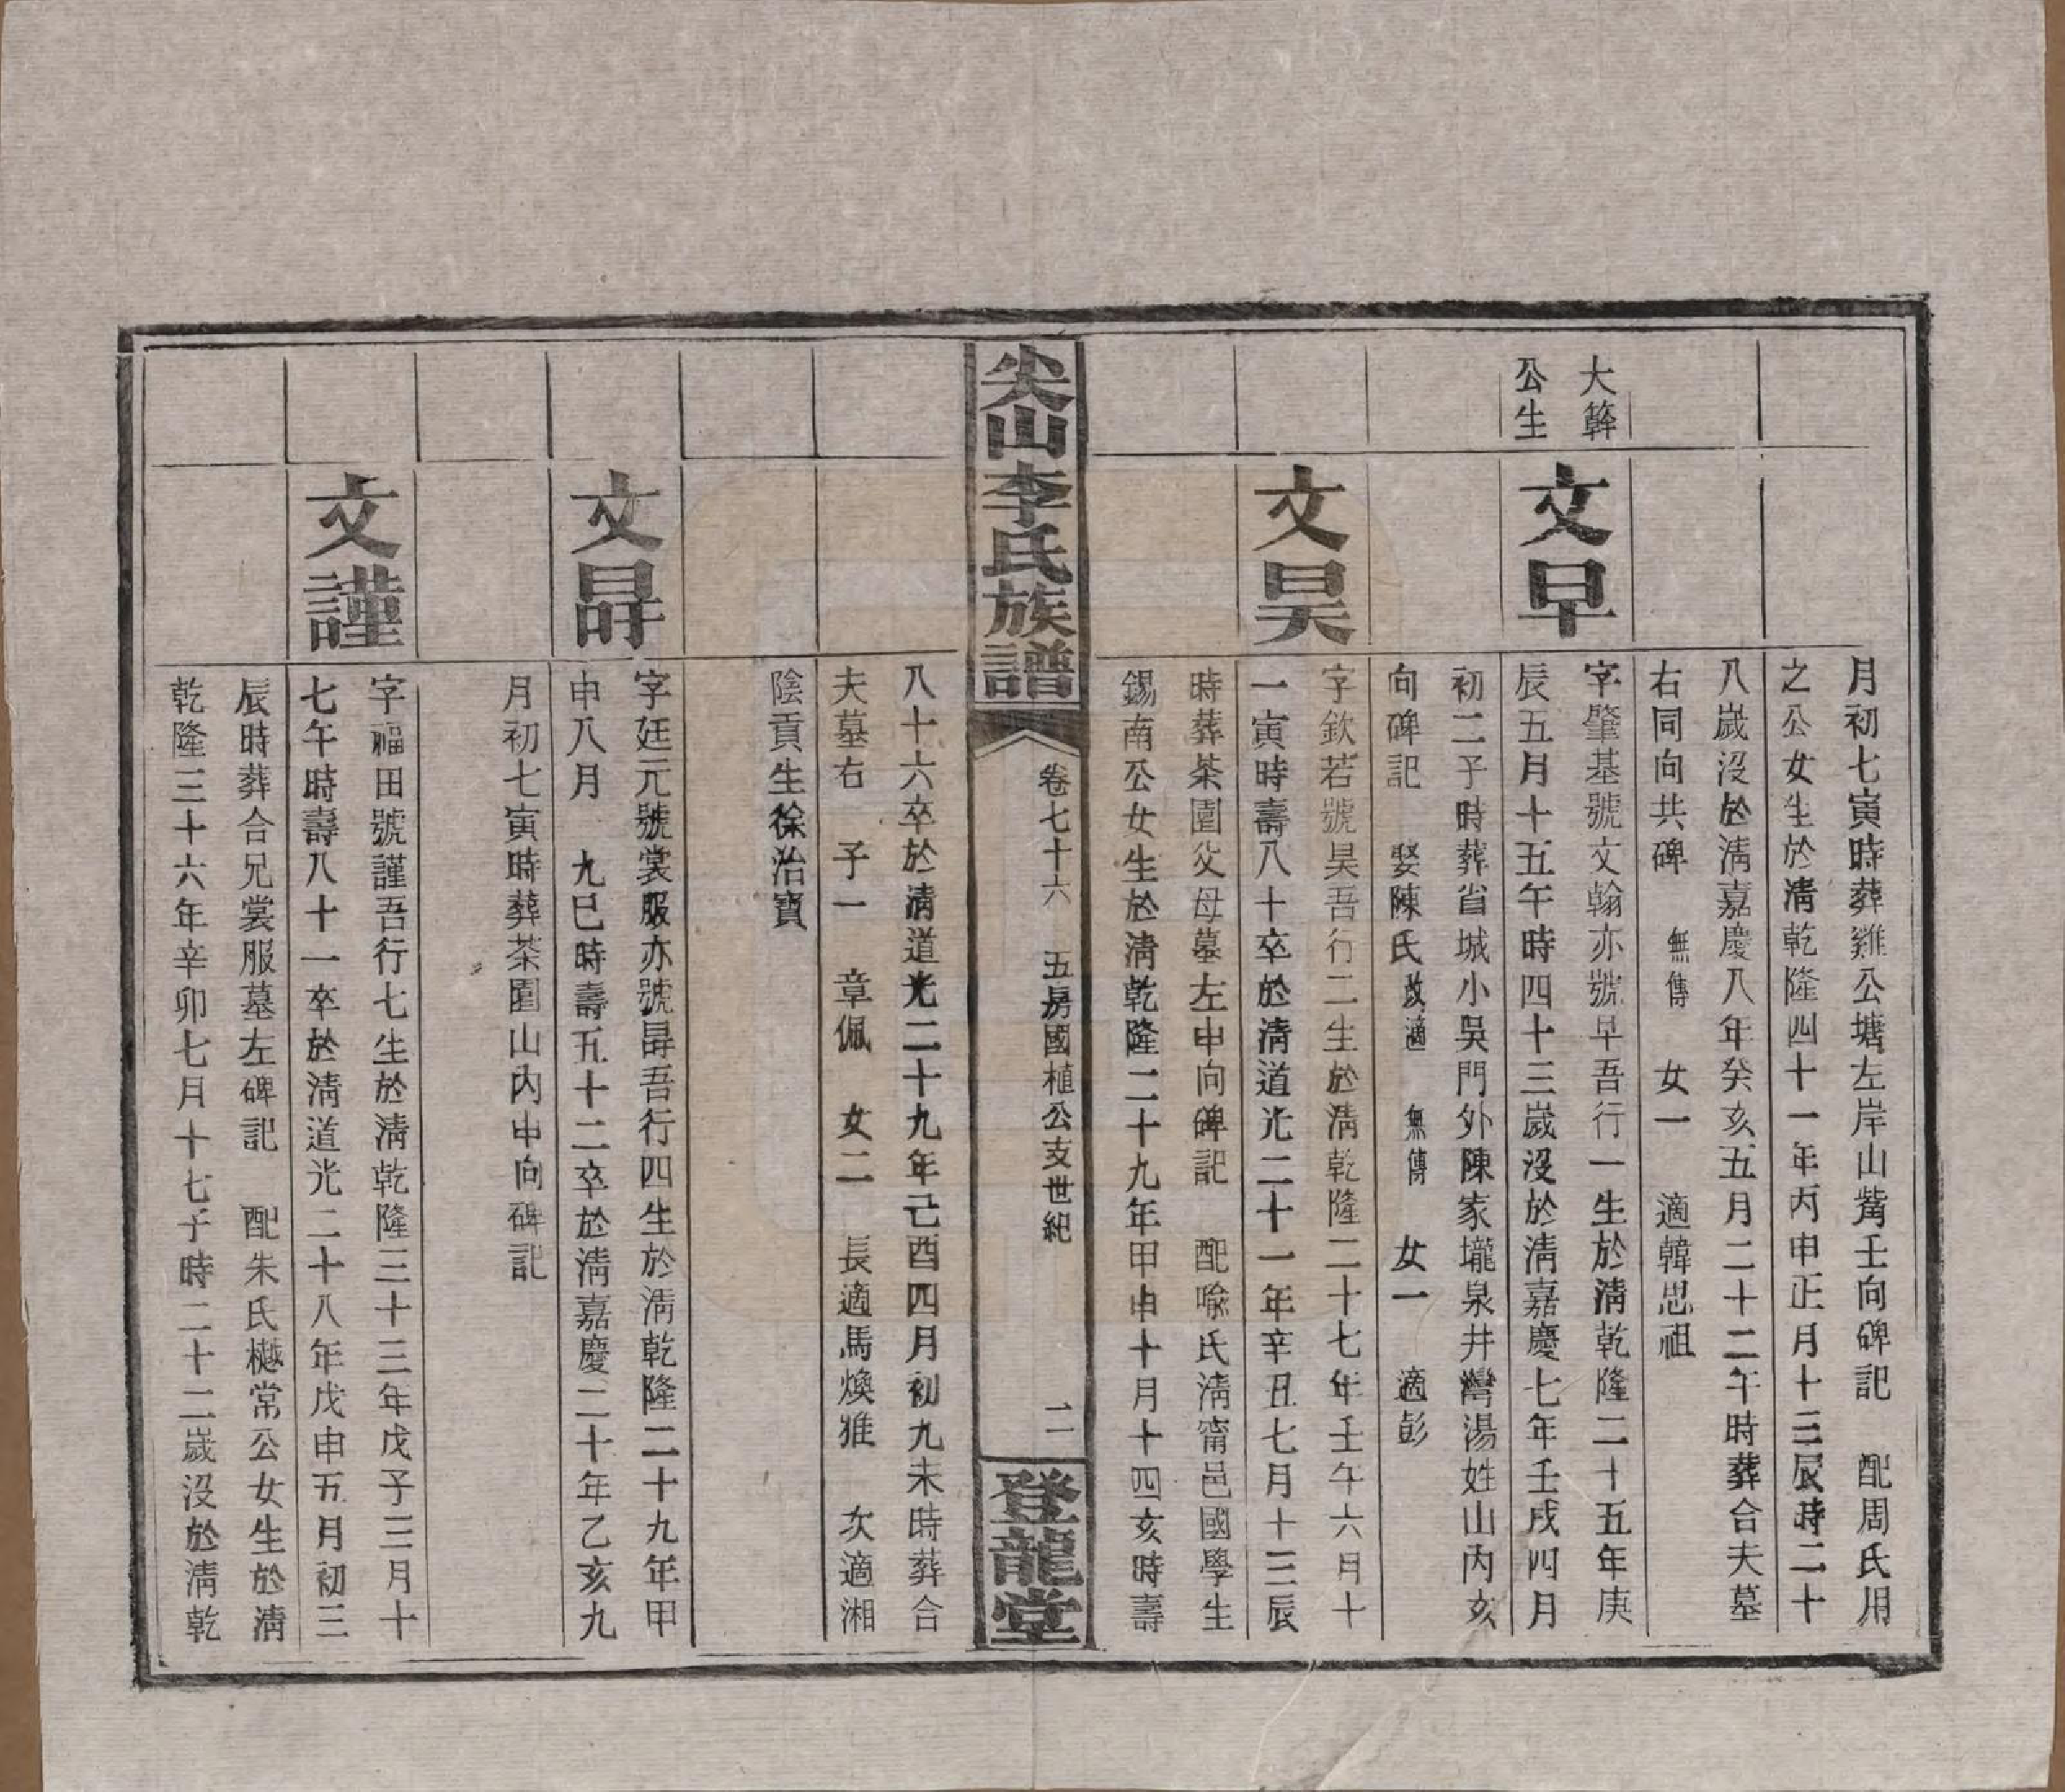 月初七寅時葬雞公塘左岸山觜壬向碑記　配周氏用
之公女生於清乾隆四十一年丙申正月十三辰時二十
八歲沒於清嘉慶八年癸亥五月二十二午時葬合夫墓
右同向共碑　無傳　女一　適韓思祖
大榦
公生
文早
字肇基號文翰亦號早吾行一生於清乾隆二十五年庚
辰五月十五午時四十三歲沒於清嘉慶七年壬戌四月
初二子時葬省城小吳門外陳家壠泉井灣湯姓山內亥
向碑記　娶陳氏改適　無傳　女一　適彭
文昊
字欽若號昊吾行二生於清乾隆二十七年壬午六月十
一寅時壽八十卒於清道光二十一年辛丑七月十三辰
時葬茶園父母墓左申向碑記　配喩氏清甯邑國學生
錫南公女生於清乾隆二十九年甲申十月十四亥時壽
尖山李氏族譜
卷七十六　五房國植公支世紀
二
登龍堂
八十六卒於清道光二十九年己酉四月初九未時葬合
夫墓右　子一　章佩　女二　長適馬煥雅　次適湘
陰貢生徐治寶
文㝵
字廷元號裳服亦號㝵吾行四生於清乾隆二十九年甲
申八月　九巳時壽五十二卒於清嘉慶二十年乙亥九
月初七寅時葬茶園山內申向碑記
文謹
字福田號謹吾行七生於清乾隆三十三年戊子三月十
七午時壽八十一卒於清道光二十八年戊申五月初三
辰時葬合兄裳服墓左碑記　配朱氏樾常公女生於清
乾隆三十六年辛卯七月十七子時二十二歲沒於清乾